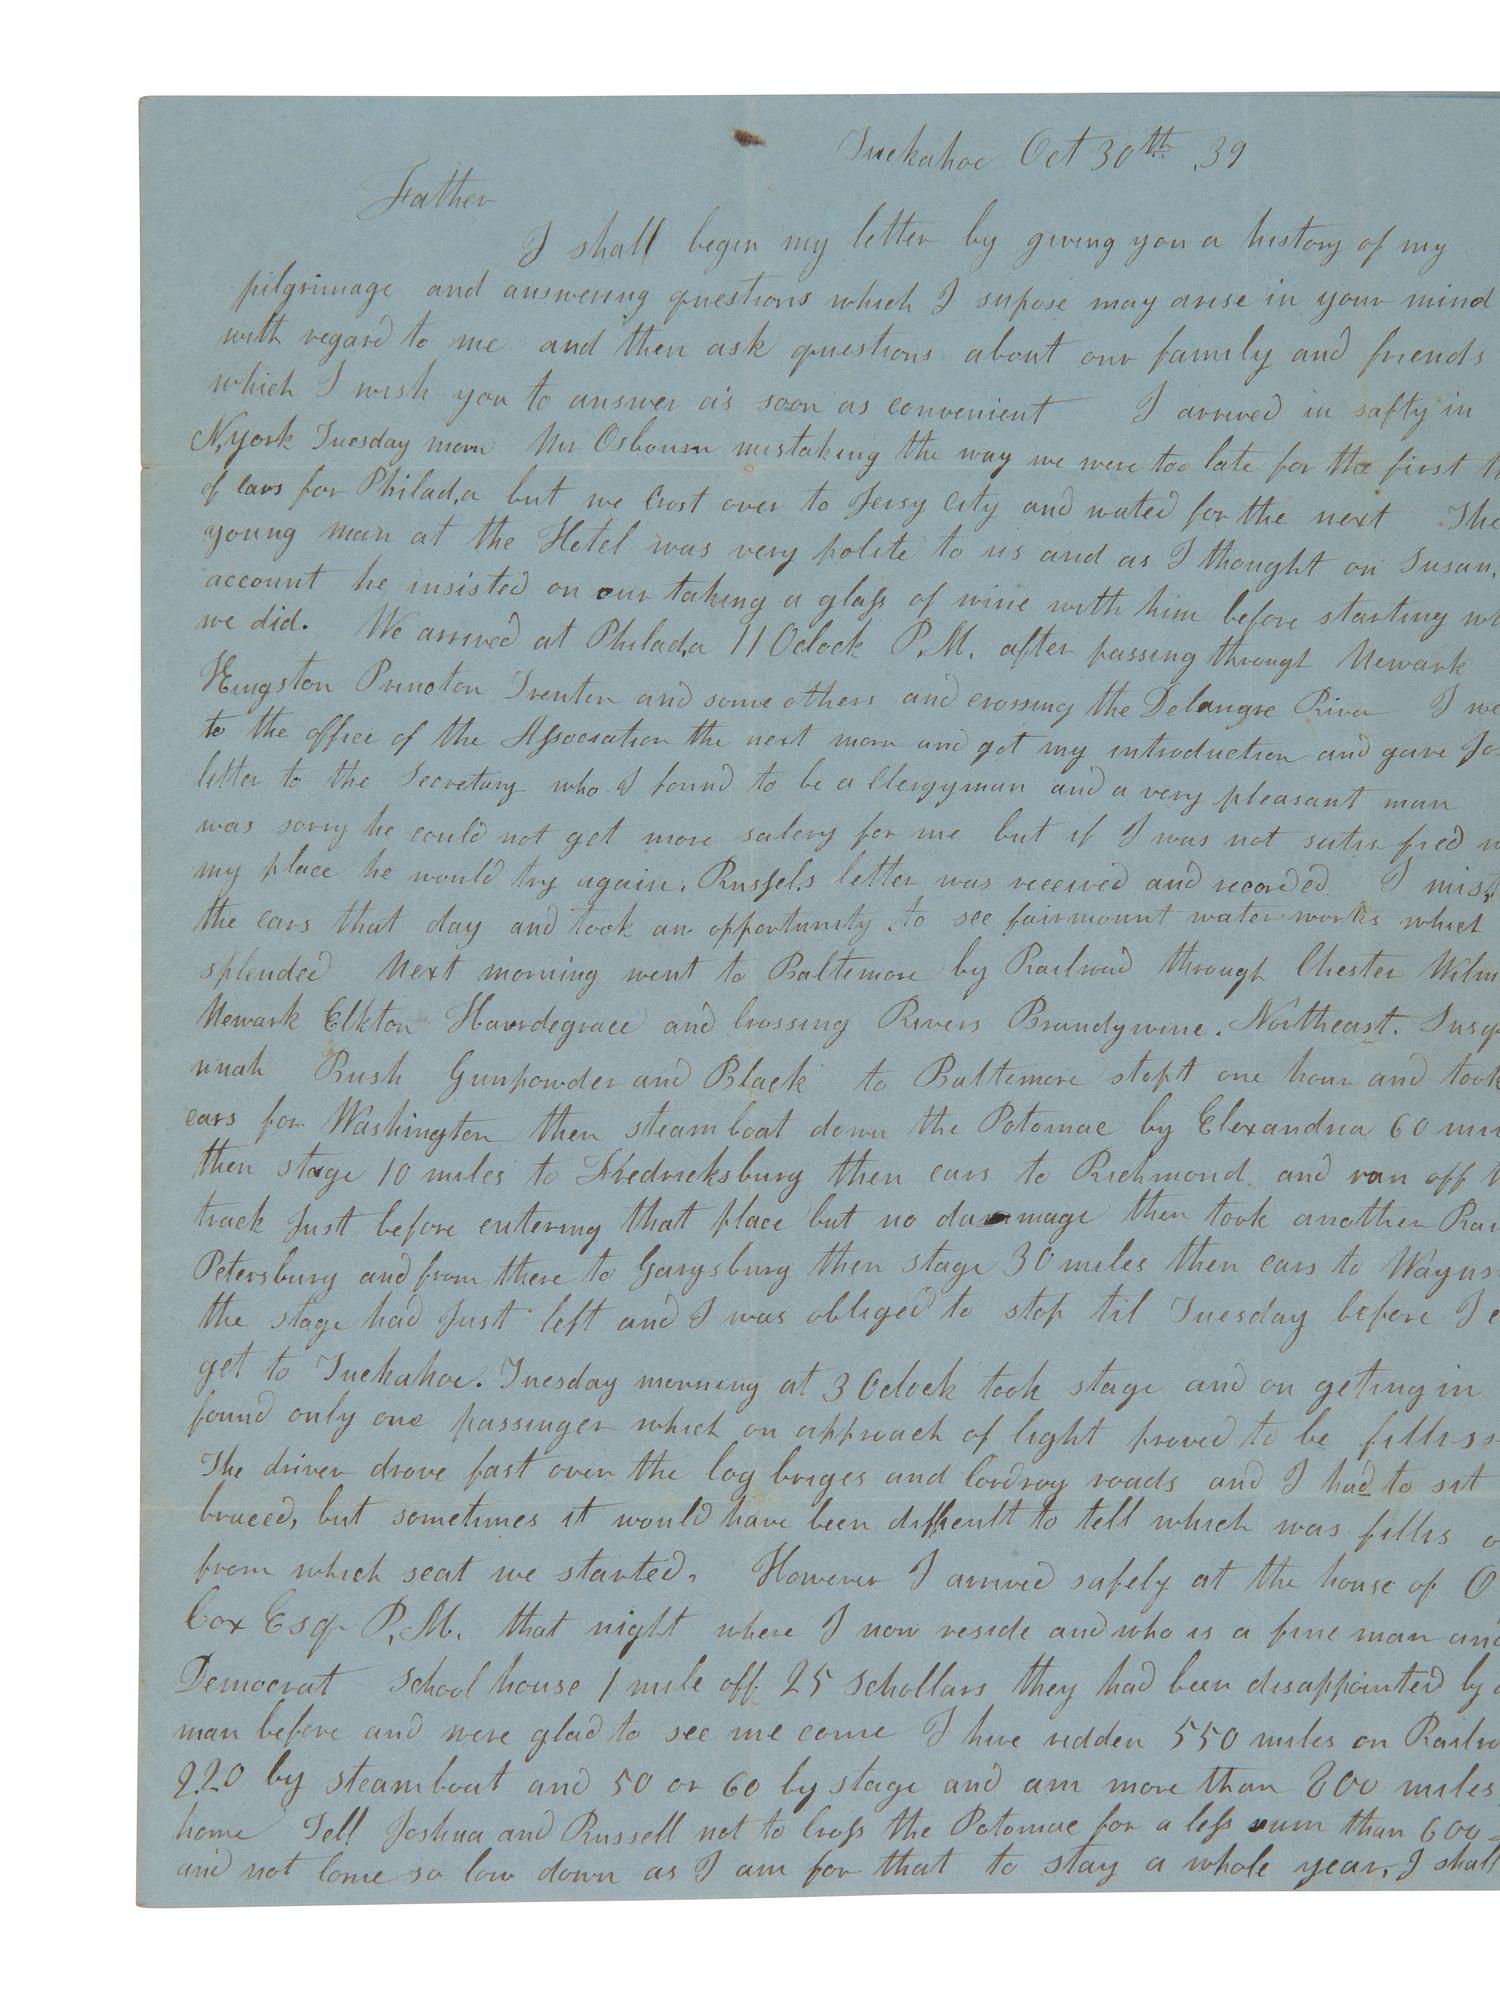 Tuckahoe Oct 30th .39
Father
I shall begin my letter by giving you a history of my
pilgrimage and answering questions which I supose may arise in your mind
with regard to me and then ask questions about our family and friends
which I wish you to answer as soon as convenient I arrived in safty in
N,york Tuesday morn Mr Osbourn mistaking the way we were too late for the first
of cars for Philad,a but we Crost over to Jersy City and wated for the next The
young man at the Hotel was very polite to us and as I thought on Susan,
account he insisted on our taking a glass of wine with him before starting
we did. We arrived at Philad,a 11 Oclock P.M. after passing through Newark
Kingston Princton Trenton and some others and crossing the Delangre River I
to the office of the Association the next morn and got my introduction and gave
letter to the Secretary who I found to be a Clergyman and a very pleasant man
was sorry he could not get more salery for me but if I was not satisfied
my place he would try again. Russels letter was received and recorded I mist
the cars that day and took an opportunity to see fairmount water works which
splended Next morning went to Baltimore by Railroad through Chester Wilm
Newark Elkton Havrdegrace and Crossing Rivers Brandywine. Northeast. Susq
unah Bush Gunpowder and Black to Baltimore stopt one hour and took
cars for Washington then steam boat down the Potomac by Elexandria 60
then stage 10 miles to Fredricksburg then cars to Richmond and ran off
track Just before entering that place but no dammage then took another Rai
Petersburg and from there to Garysburg then stage 30 miles then cars to Wayns
the stage had Just left and I was obliged to stop til Tuesday before I
get to Tuckahoe. Tuesday morning at 3 Oclock took stage and on geting in
found only one passinger which on approach of light proved to be fillis
The driver drove fast over the log briges and Cordroy roads and I had to sit
braced, but sometimes it would have been difficult to tell which was fillis
from which seat we started. However I arrived safely at the house of
Cox Esqr P.M. that night where I now reside and who is a fine man and
Democrat School house 1 mile off 25 Schollars they had been disappointed by
man before and were glad to see me come I have ridden 550 miles on Railro
220 by steamboat and 50 or 60 by stage and am more than 800 miles
home Tell Joshua and Russell not to Cross the Potomac for a less sum than 600
and not Come so low down as I am for that to stay a whole year, I shall